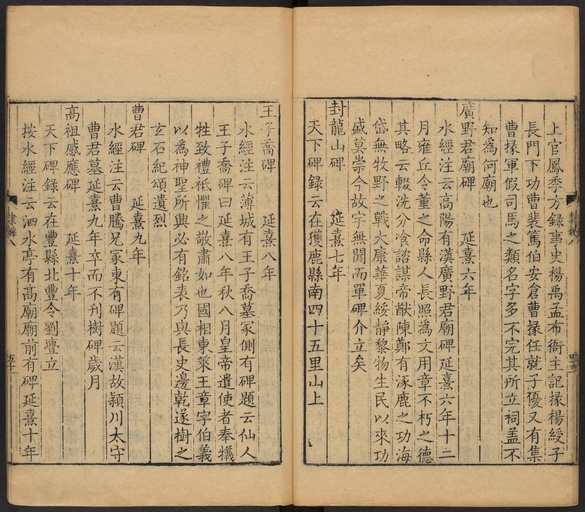 上官鳳季方錄事史楊禹孟布衙主記掾楊綬子
長門下功曹裴篤伯安倉曹掾任就子優又有集
曹掾軍假司馬之類名字多不完其所立祠蓋不
知為何廟也
廣野君廟碑　延熹六年
水經注云高陽有漢廣野君廟碑延熹六年十二
月雍丘令董之命縣人長照為文用章不朽之德
其略云輟洗分食諮謀帝猷陳鄭有涿鹿之功海
岱無牧野之戰大康華夏綏靜黎物生民以來功
盛莫崇今故宇無聞而單碑介立矣
封龍山碑　延熹七年
天下碑錄云在獲鹿縣南四十五里山上
王子喬碑　延熹八年
水經注云薄城有王子喬墓冢側有碑題云仙人
王子喬碑曰延熹八年秋八月皇帝遣使者奉犧
牲致禮祗懼之敬肅如也國相東萊王章字伯義
以為神聖所興必有銘表乃與長史邊乾遂樹之
玄石紀頌遺烈
曹君碑　延熹九年
水經注云曹騰兄冢東有碑題云漢故潁川太守
曹君墓延熹九年卒而不刊樹碑歲月
高祖感應碑　延熹十年
天下碑錄云在豐縣北豐令劉亹立
按水經注云泗水亭有高廟廟前有碑延熹十年